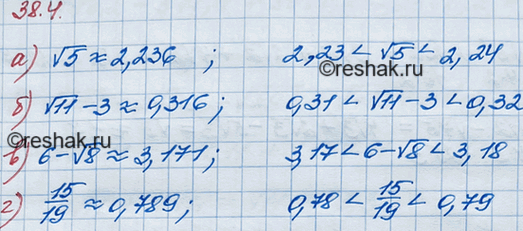 38.4.
а) √5 ≈ 2,236 ; 2,23 < √5 < 2,24
©reshak.ru
б) √11 - 3 ≈ 0,316; 0,31 < √11 - 3 < 0,32
в) 6 - √8 ≈ 3,171; 3,17 < 6 - √8 < 3,18
©reshak.ru
г) 15/19 ≈ 0,789; 0,78 < 15/19 < 0,79